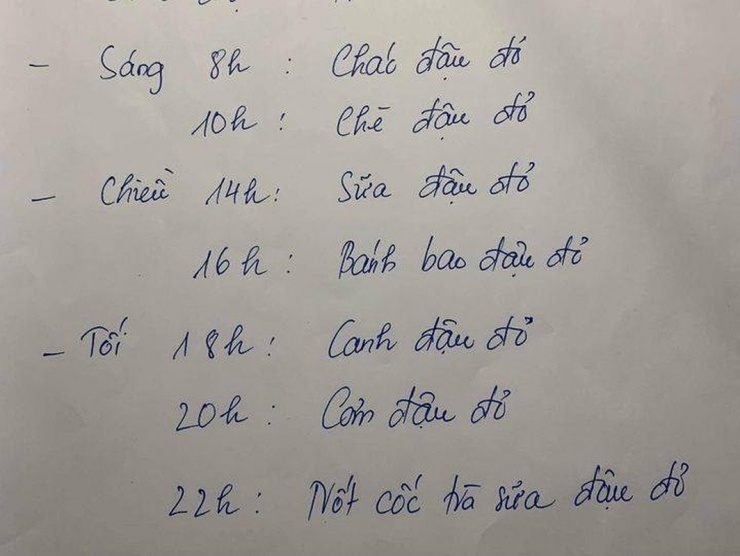 - Sáng 8h : Cháo đậu đỏ
10h : Chè đậu đỏ
- Chiều 14h : Sữa đậu đỏ
16h : Bánh bao đậu đỏ
- Tối 18h : Canh đậu đỏ
20h : Cơm đậu đỏ
22h : Nốt cốc trà sữa đậu đỏ